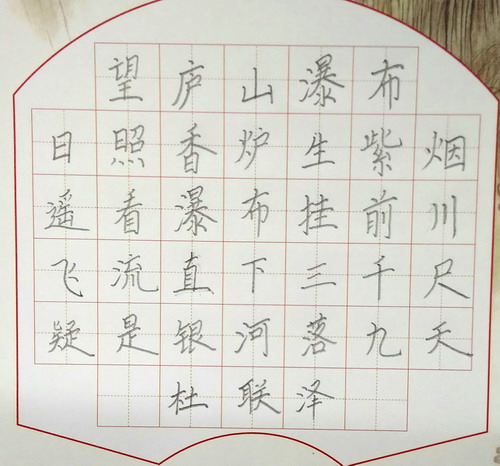 望庐山瀑布
日照香炉生紫烟
遥看瀑布挂前川
飞流直下三千尺
疑是银河落九天
杜联泽